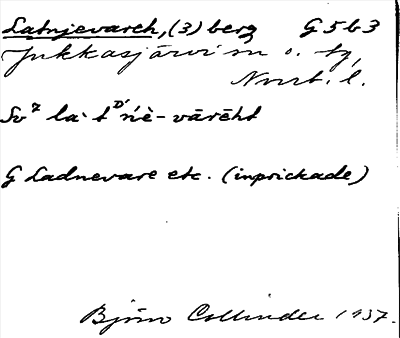 Latnjevareh, (3) berg G5b3
Jukkasjärvi sn o. tg,
Norrb. l.
Sv7 la·tᴰńè-vārēht
G Ladnevare etc. (inprickade)
Björn Collinder 1937.